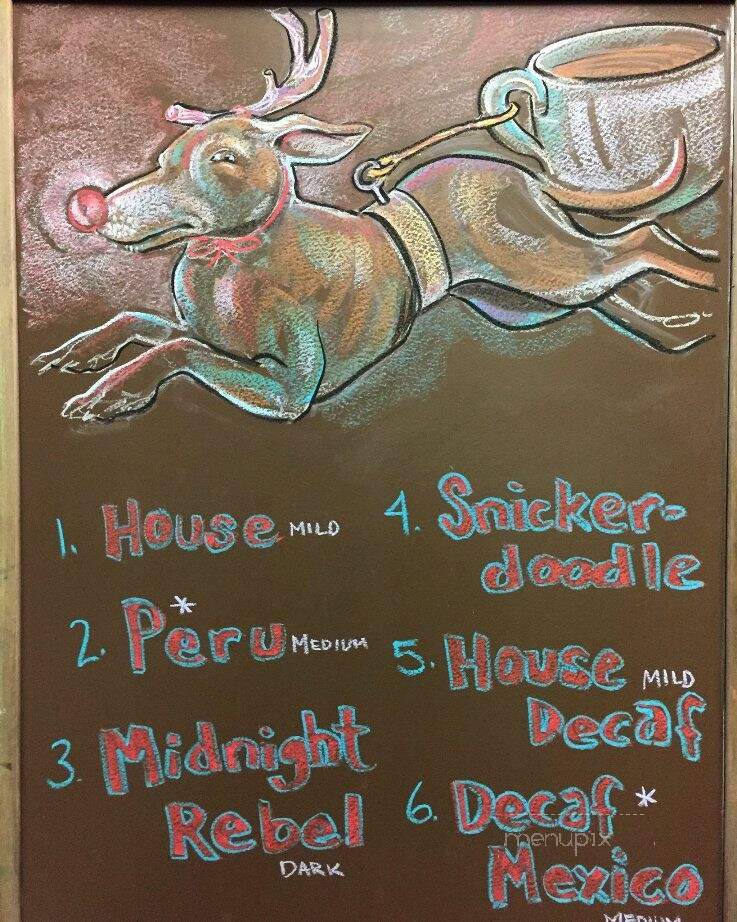 1. House MILD
2. Peru* MEDIUM
3. Midnight
Rebel
DARK
4. Snicker-
doodle
5. House MILD
Decaf
6. Decaf *
menupix
Mexico
MEDIUM